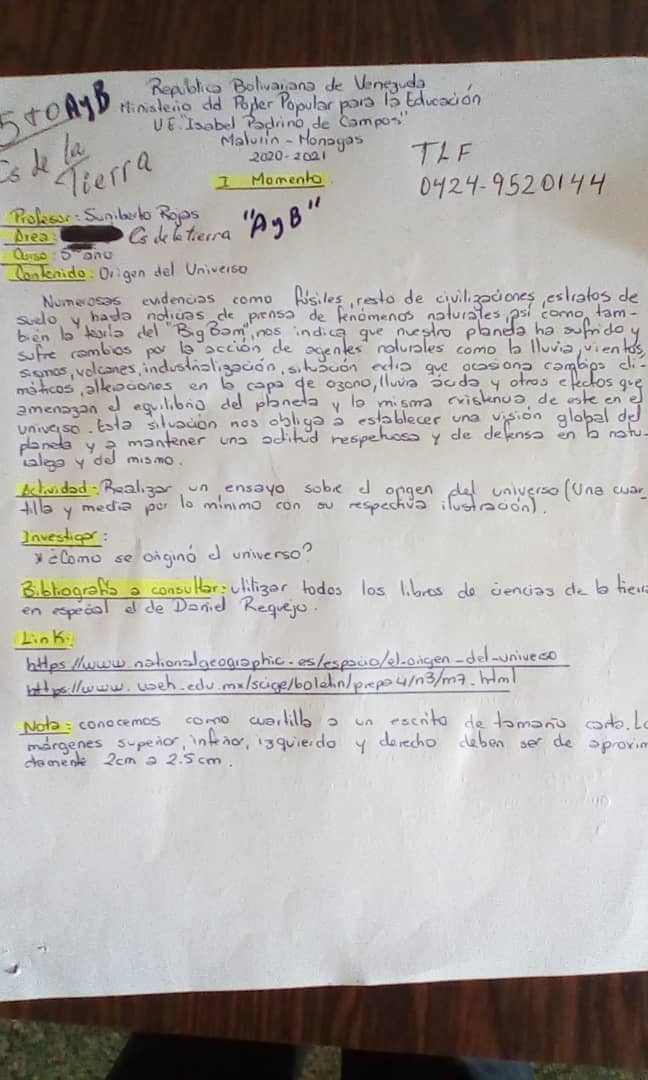 5to AyB
Cs de la
Tierra
Republica Bolivariana de Venezuela
Ministerio del Poder Popular para la Educación
U.E. "Isabel Padrino de Campos"
Maturin - Monagas
2020-2021
TLF
0424-9520144
I Momento
Profesor: Sunilberto Rojas
Area: Cs de la tierra "AyB"
Curso: 5to año
Contenido: Origen del Universo
Numerosas evidencias como fósiles, resto de civilizaciones, estratos de
suelo y hasta noticias de prensa de fenómenos naturales, así como tam-
bién la teoría del "Big Bam", nos indica que nuestro planeta ha sufrido y
sufre cambios por la acción de agentes naturales como la lluvia, vientos,
sismos, volcanes, industrialización, situación esta que ocasiona cambios cli-
máticos, alteraciones en la capa de ozono, lluvia ácida y otros efectos que
amenazan el equilibrio del planeta y la misma existencia de este en el
universo. Esta situación nos obliga a establecer una visión global del
planeta y a mantener una actitud respetuosa y de defensa en la natu-
raleza y del mismo.
Actividad: Realizar un ensayo sobre el origen del universo (Una cuar_
tilla y media por lo mínimo con su respectiva ilustración).
Investigar:
* ¿Como se originó el universo?
Bibliografía a consultar: utilizar todos los libros de ciencias de la tierra
en especial el de Daniel Requejo.
Link:
https//www.nationalgeographic.es/espacio/el-origen-del-universo
https://www.uaeh.edu.mx/scige/boletin/prepa4/n3/m7.html
Nota: conocemos como cuartilla a un escrito de tamaño carta. Lo
márgenes superior, inferior, izquierdo y derecho deben ser de aproxim
damente 2cm a 2.5cm.